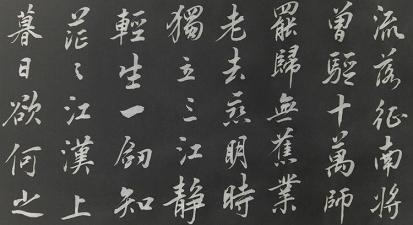 流落征南将
曾驅十萬師
罷歸無舊業
老去恋明時
獨立三江靜
輕生一釼知
茫々江漢上
暮日欲何之